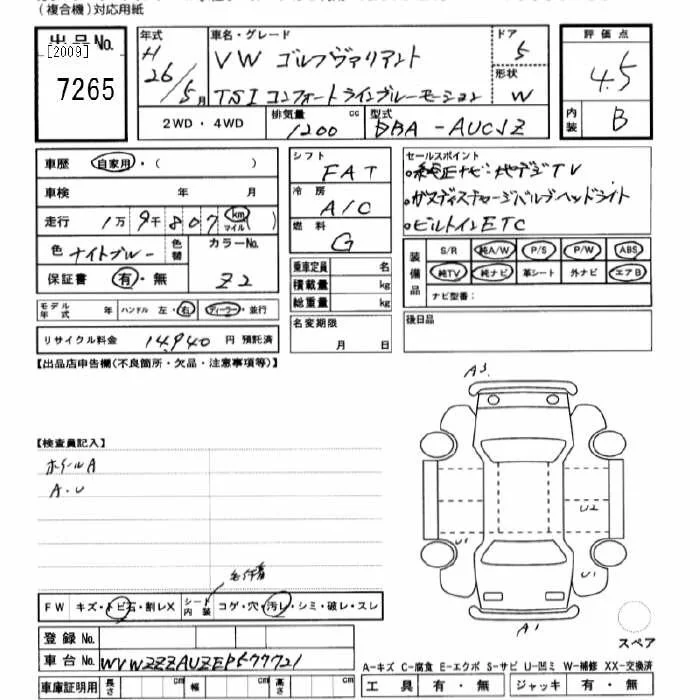 （複合機）対応用紙
出品No.
[2009]
7265
年式 H 26/5月
車名・グレード VW ゴルフヴァリアント
TSI コンフォートラインブルーモーション
ドア 5
形状 W
評価点 4.5
内装 B
2WD ・ 4WD
排気量 1200 cc
型式 DBA-AUCJZ
車歴 自家用・（ ）
車検 年 月
走行 1万9千807 km マイル
色 ナイトブルー 色替
カラーNo. Z2
保証書 有・無
モデル年式 年 ハンドル 左・右 ディーラー・並行
リサイクル料金 14,940 円 預託済
シフト FAT
冷房 A/C
燃料 G
乗車定員 名
積載量 kg
総重量 kg
名変期限
月 日
セールスポイント
純正ナビ・地デジTV
ガスディスチャージバルブヘッドライト
ビルトインETC
装備品
S/R 純A/W P/S P/W ABS
純TV 純ナビ 革シート 外ナビ エアB
ナビ型番：
後日品
【出品店申告欄(不良箇所・欠品・注意事項等)】
【検査員記入】
ホイールA
A・U
A3
U2
U1
U1
A1
F W キズ・トビ石・割レX
シート内装 コゲ・穴・汚レ・シミ・破レ・スレ
登録 No.
車台 No. WVWZZZAUZEP577721
車庫証明用 長さ cm 幅 cm 高さ cm
スペア
A-キズ C-腐食 E-エクボ S-サビ U-凹ミ W-補修 XX-交換済
工具 有・無 ジャッキ 有・無